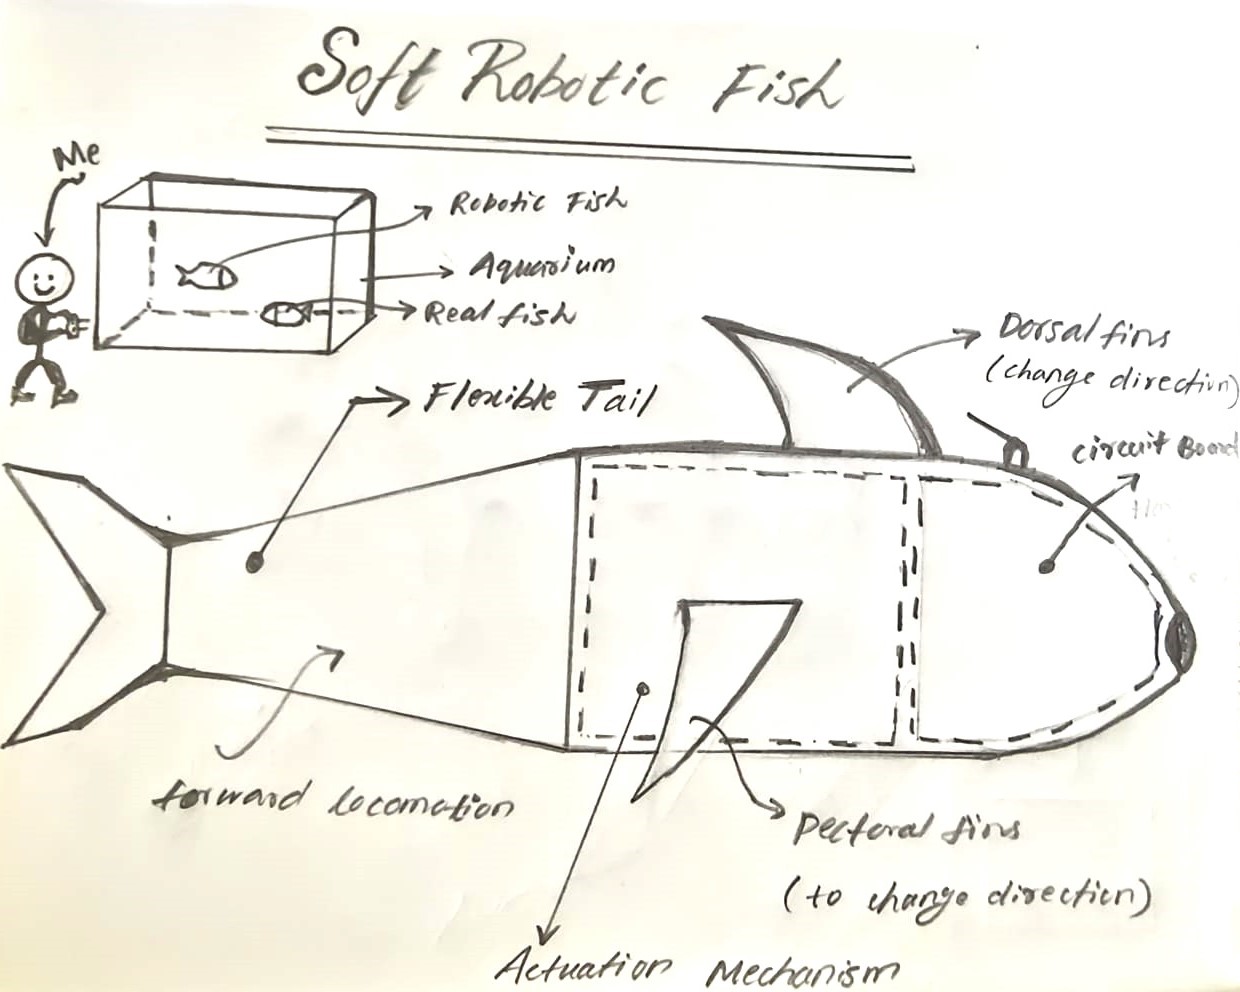 Soft Robotic Fish
Me
Robotic Fish
Aquarium
Real fish
Dorsal fins
(change direction)
Flexible Tail
circuit Board
forward locomotion
Pectoral fins
(to change direction)
Actuation Mechanism